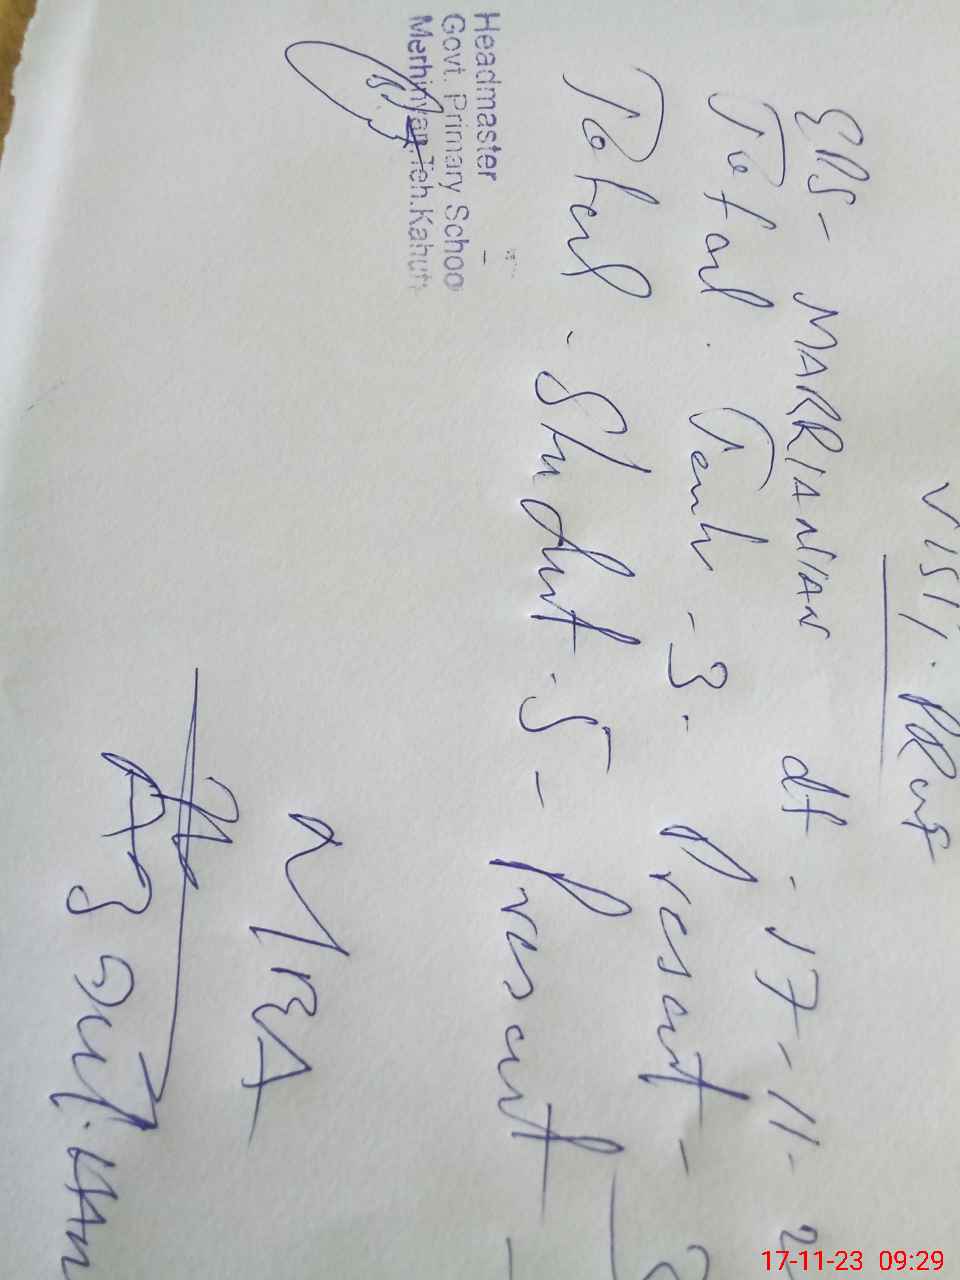 VISIT. PROF
GPS - MARRIANIAN dt. 17-11-2
Total. Teach - 3. Present -
Total - Student. 5 - Present -
Headmaster
Govt. Primary School
Merhinyan, Teh. Kahuta
KHAN
17-11-23 09:29